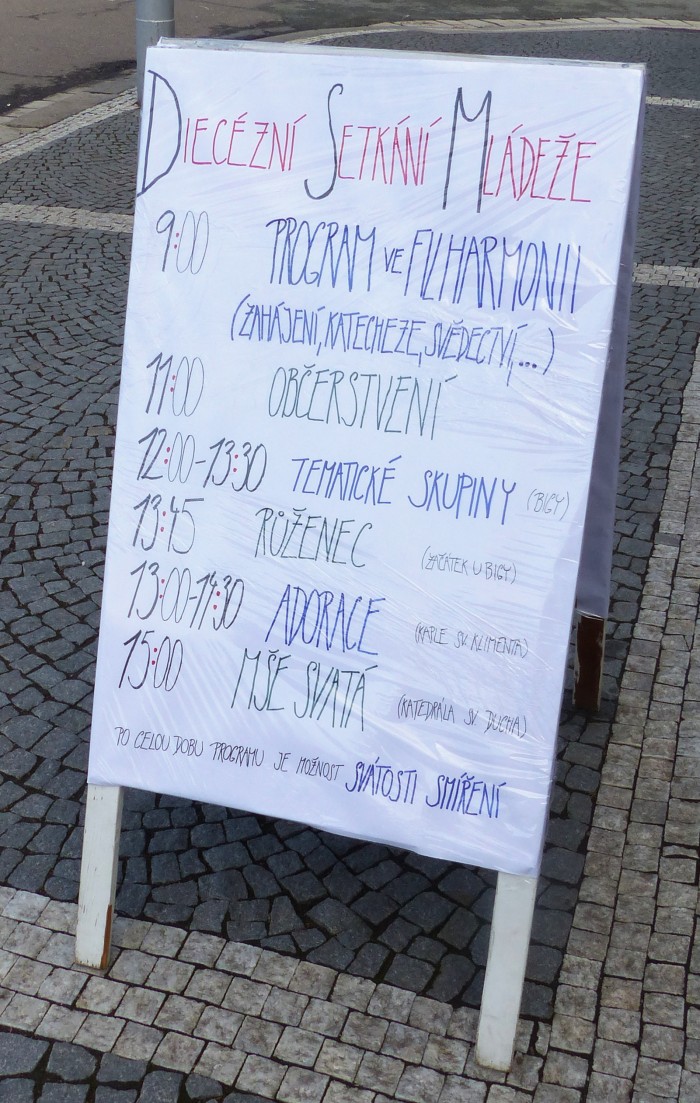 DIECÉZNÍ SETKÁNÍ MLÁDEŽE
9:00 PROGRAM VE FILHARMONII
(ZAHÁJENÍ, KATECHEZE, SVĚDECTVÍ, ...)
11:00 OBČERSTVENÍ
12:00-13:30 TEMATICKÉ SKUPINY (BIGY)
13:45 RŮŽENEC (ZAČÁTEK U BIGY)
13:00-14:30 ADORACE (KAPLE SV. KLIMENTA)
15:00 MŠE SVATÁ (KATEDRÁLA SV. DUCHA)
PO CELOU DOBU PROGRAMU JE MOŽNOST SVÁTOSTI SMÍŘENÍ